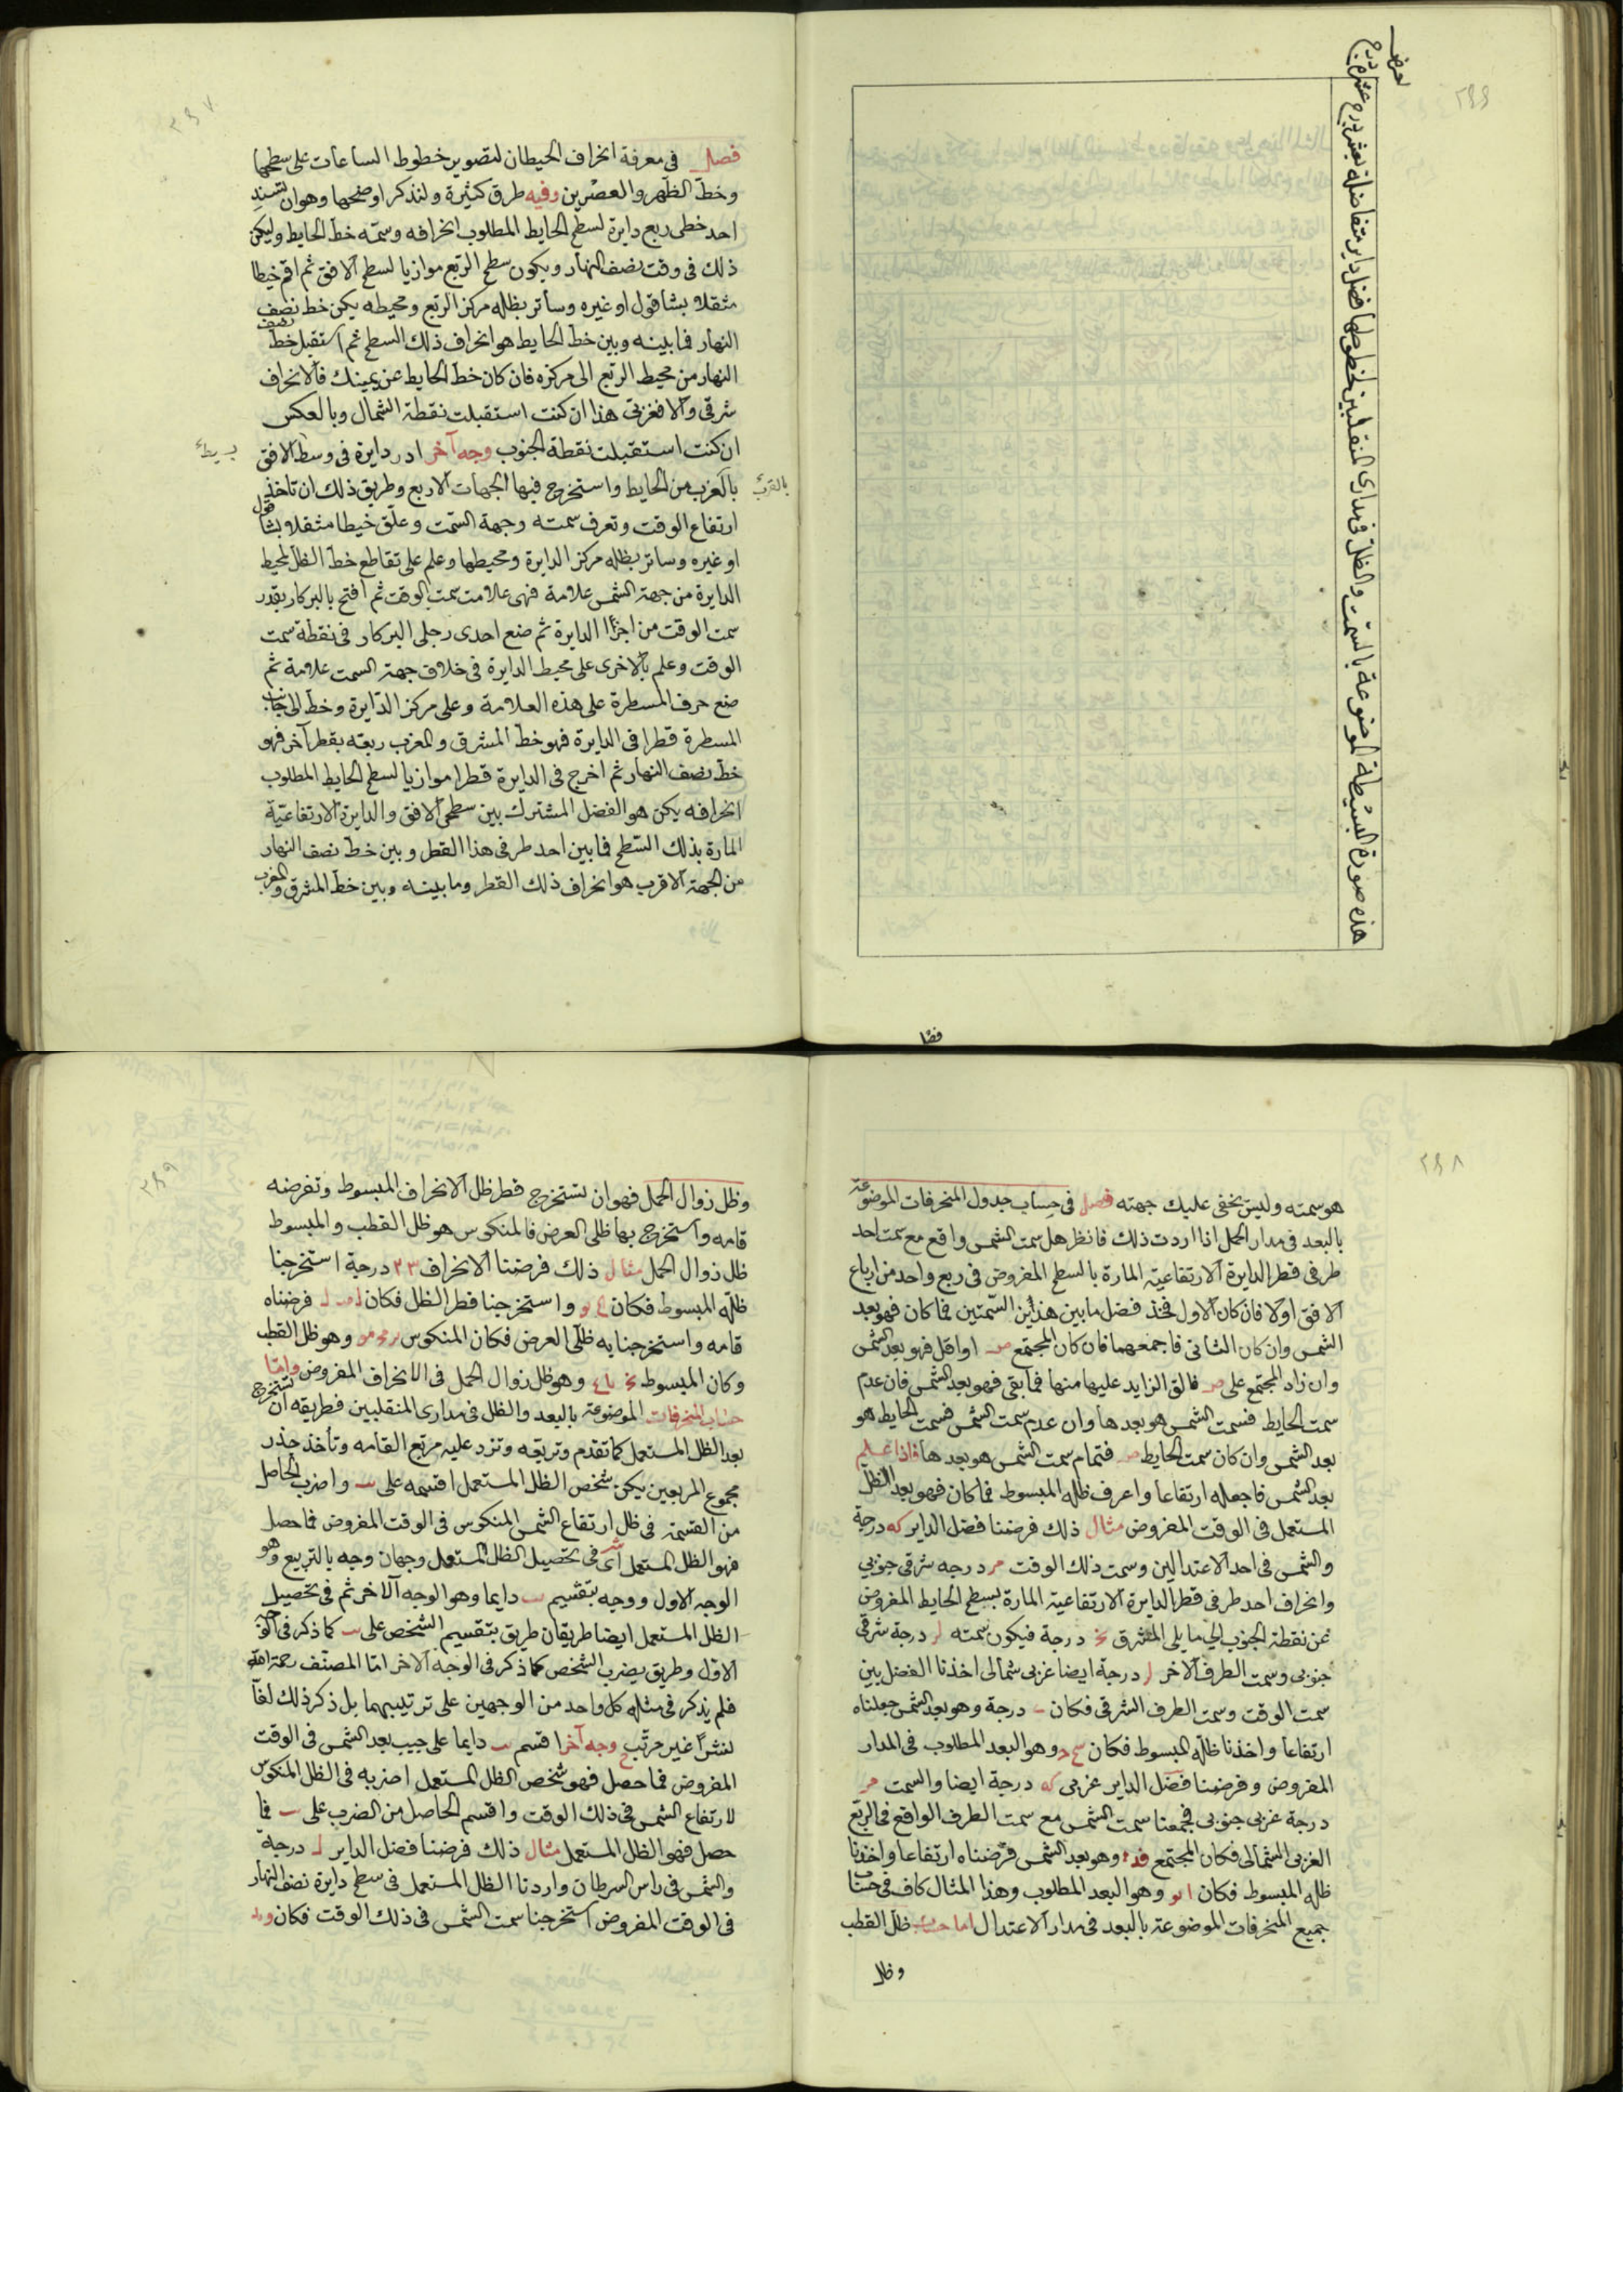 ٢٩٦
هذه صورة البسيطة الموضوعة بالسمت والظل فى مدارى المنقلبين لخطوطها فضل داير متفاضلة بعشر درج
لعرض
فصل
٢٩٧
فصل فى معرفة انحراف الحيطان لتصوير خطوط الساعات على سطحها
وخط الظهر والعصرين وفيه طرق كثيرة ولنذكر اوضحها وهو ان تسند
احد خطى ربع دايرة لسطح الحايط المطلوب انحرافه وسمّه خط الحايط وليكن
ذلك فى وقت نصف النهار ويكون سطح الربع موازيا لسطح الافق ثم اقم خيطا
مثقلا بشاقول او غيره وساتر بظله مركز الربع ومحيطه يكن خط نصف
النهار فما بينه وبين خط الحايط هو انحراف ذلك السطح ثم استقبل خط نصف
النهار من محيط الربع الى مركزه فان كان خط الحايط عن يمينك فالانحراف
شرقى والا فغربى هذا ان كنت استقبلت نقطة الشمال وبالعكس
ان كنت استقبلت نقطة الجنوب وجه آخر ادر دايرة فى وسط الافق
بالقرب من الحايط واستخرج فيها الجهات الاربع وطريق ذلك ان تاخذ
بالقرب
ارتفاع الوقت وتعرف سمته وجهة السمت وعلق خيطا مثقلا بشاقول
او غيره وساتر بظله مركز الدايرة ومحيطها وعلم على تقاطع خط الظل لمحيط
الدايرة من جهة الشمس علامة فهى علامت سمت الوقت ثم افتح بالبركار بقدر
سمت الوقت من اجزاء الدايرة ثم ضع احدى رجلى البركار فى نقطة سمت
الوقت وعلم بالاخرى على محيط الدايرة فى خلاف جهة السمت علامة ثم
ضع حرف المسطرة على هذه العلامة وعلى مركز الدايرة وخط الى جانب
المسطرة قطرا فى الدايرة فهو خط المشرق والمغرب ربعه بقطر آخر فهو
خط نصف النهار ثم اخرج فى الدايرة قطرا موازيا لسطح الحايط المطلوب
انحرافه يكن هو الفضل المشترك بين سطحى الافق والدايرة الارتفاعية
المارة بذلك السطح فما بين احد طرفى هذا القطر وبين خط نصف النهار
من الجهة الاقرب هو انحراف ذلك القطر وما بينه وبين خط المشرق والمغرب
٢٩٨
هو سمته وليس يخفى عليك جهته فصل فى حساب جدول المنحرفات الموضوعة
بالبعد فى مدار الحمل اذا اردت ذلك فانظر هل سمت الشمس واقع مع سمت احد
طرفى قطر الدايرة الارتفاعية المارة بالسطح المفروض فى ربع واحد من ارباع
الافق اولا فان كان الاول فخذ فضل ما بين هذين السمتين فما كان فهو بعد
الشمس وان كان الثانى فاجمعهما فان كان المجتمع ص او اقل فهو بعد الشمس
وان زاد المجتمع على ص فالق الزايد عليها منها فما بقى فهو بعد الشمس فان عدم
سمت الحايط فسمت الشمس هو بعدها وان عدم سمت الشمس فسمت الحايط هو
بعد الشمس وان كان سمت الحايط ص فتمام سمت الشمس هو بعدها فاذا علم
بعد الشمس فاجعله ارتفاعا واعرف ظله المبسوط فما كان فهو بعد الظل
المستعمل فى الوقت المفروض مثال ذلك فرضنا فضل الداير كه درجة
والشمس فى احد الاعتدالين وسمت ذلك الوقت مر درجه شرقى جنوبي
وانحراف احد طرفى قطر الدايرة الارتفاعية المارة بسطح الحايط المفروض
عن نقطة الجنوب الى ما يلى المشرق درجة فيكون سمته لر درجة شرقى
جنوبى وسمت الطرف الاخر لر درجة ايضا غربى شمالى اخذنا الفضل بين
سمت الوقت وسمت الطرف الشرقى فكان درجة وهو بعد الشمس جعلناه
ارتفاعا واخذنا ظله المبسوط فكان وهو البعد المطلوب فى المدار
المفروض وفرضنا فضل الداير غربى كه درجة ايضا والسمت مر
درجة غربى جنوبى فجمعنا سمت الشمس مع سمت الطرف الواقع فى الربع
الغربى الشمالى فكان المجتمع فد وهو بعد الشمس فرضناه ارتفاعا واخذنا
ظله المبسوط فكان وهو البعد المطلوب وهذا المثال كاف فى حساب
جميع المنحرفات الموضوعة بالبعد فى مدار الاعتدال اما حساب ظل القطب
وظل
٢٩٩
وظل زوال الحمل فهو ان تستخرج قطر ظل الانحراف المبسوط وتفرضه
قامه واستخرج بها ظلى العرض فالمنكوس هو ظل القطب والمبسوط
ظل زوال الحمل مثال ذلك فرضنا الانحراف ٢٣ درجة استخرجنا
ظله المبسوط فكان واستخرجنا قطر الظل فكان فرضناه
قامه واستخرجنا به ظلى العرض فكان المنكوس وهو ظل القطب
وكان المبسوط وهو ظل زوال الحمل فى الانحراف المفروض واما
حساب المنحرفات الموضوعة بالبعد والظل فى مدارى المنقلبين فطريقه ان تستخرج
بعد الظل المستعمل كما تقدم وتربعه وتزد عليه مربع القامه وتأخذ جذر
مجموع المربعين يكن شخص الظل المستعمل اقسمه على واضرب الحاصل
من القسمة فى ظل ارتفاع الشمس المنكوس فى الوقت المفروض فما حصل
فهو الظل المستعمل اى فى تحصيل الظل المستعمل وجهان وجه بالتربيع وهو
الوجه الاول ووجه بتقسيم دايما وهو الوجه الآخر ثم فى تحصيل
الظل المستعمل ايضا طريقان طريق بتقسيم الشخص على كما ذكر فى الوجه
الاول وطريق بضرب الشخص كما ذكر فى الوجه الاخر امّا المصنّف رحمة الله
فلم يذكر فى مثله كل واحد من الوجهين على ترتيبهما بل ذكر ذلك لفّا
نشرًا غير مرتّب وجه آخر اقسم دايما على جيب بعد الشمس فى الوقت
المفروض فما حصل فهو شخص الظل المستعمل اضربه فى الظل المنكوس
لارتفاع الشمس فى ذلك الوقت واقسم الحاصل من الضرب على فما
حصل فهو الظل المستعمل مثال ذلك فرضنا فضل الداير ل درجة
والشمس فى راس السرطان واردنا الظل المستعمل فى سطح دايرة نصف النهار
فى الوقت المفروض استخرجنا سمت الشمس فى ذلك الوقت فكان